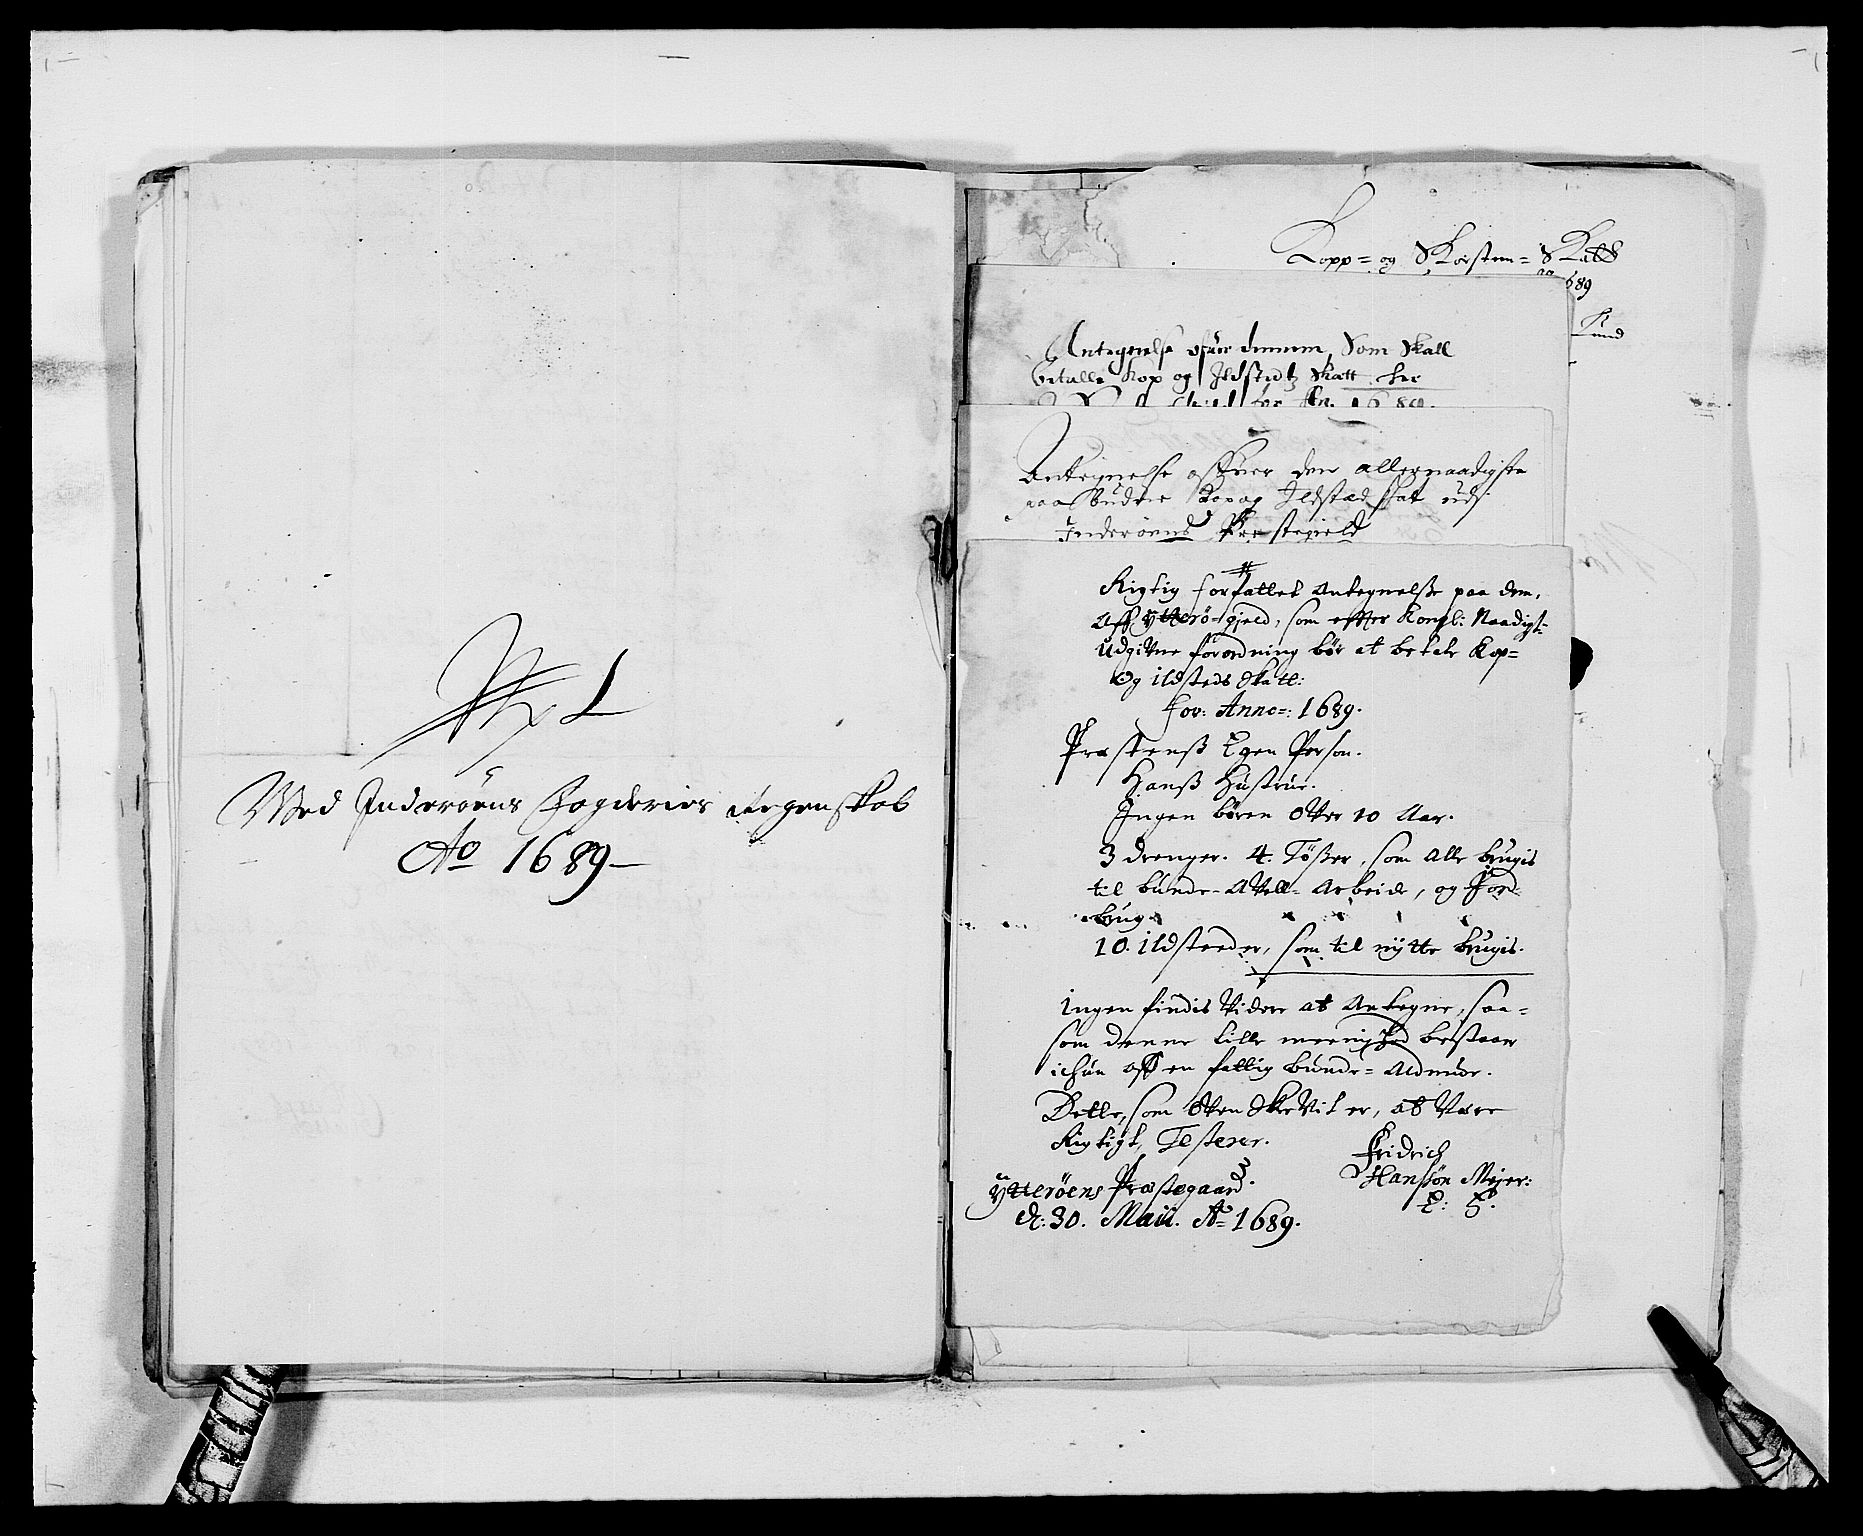 Med Inderøens Fogderies Regenskab
Ao 1689
Kopp= og Skorsten= Skatt
1689
Antegnelse ofuer dennem, Som Skall
betalle Kop og Ildstedtz Skatt
for An. 1689.
Antegnelse offuer den allernaadigste
paabudne Kop og Ildstæd skat udi
Inderøens Præstegield
Rigtig forfattet Antegnelsse paa dem,
Aff ytterø-gield, som effter Kongl: Naadigst-
Udgifne forordning bør at betale Kop=
Og ildsteds Skatt:
for: Anno=: 1689.
Præstenss Egen Person.
Hanss Hustrue.
Ingen børen Ofver 10 Aar.
3 drenger. 4. Tøsser, som Alle brugis
til bunde- Afvell- Arbeide, og Jord-
brug
10. ildstæder, som til nytte brugis.
ingen findis Videre at Antegne, saa=
som denne lille meenighed bestaar
ichun aff en fattig bunde= Almue.
Dette, som Ofven Skrevit er, at Være
Rigtigt, Testerer.
Fridrich
Hanssøn Mejer:
ytterøens Præstegaard.
d: 30. Maii. Ao 1689.